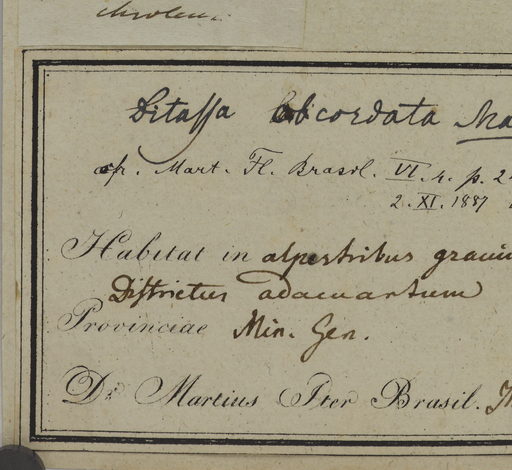 Ditassa obcordata Ma
cfr. Mart. Fl. Brasil. VI. 4. p. 24
2. XI. 1887
Habitat in alpestribus
Districtus adamantum
Provinciae Min. Gen.
Dr. Martius Iter Brasil.